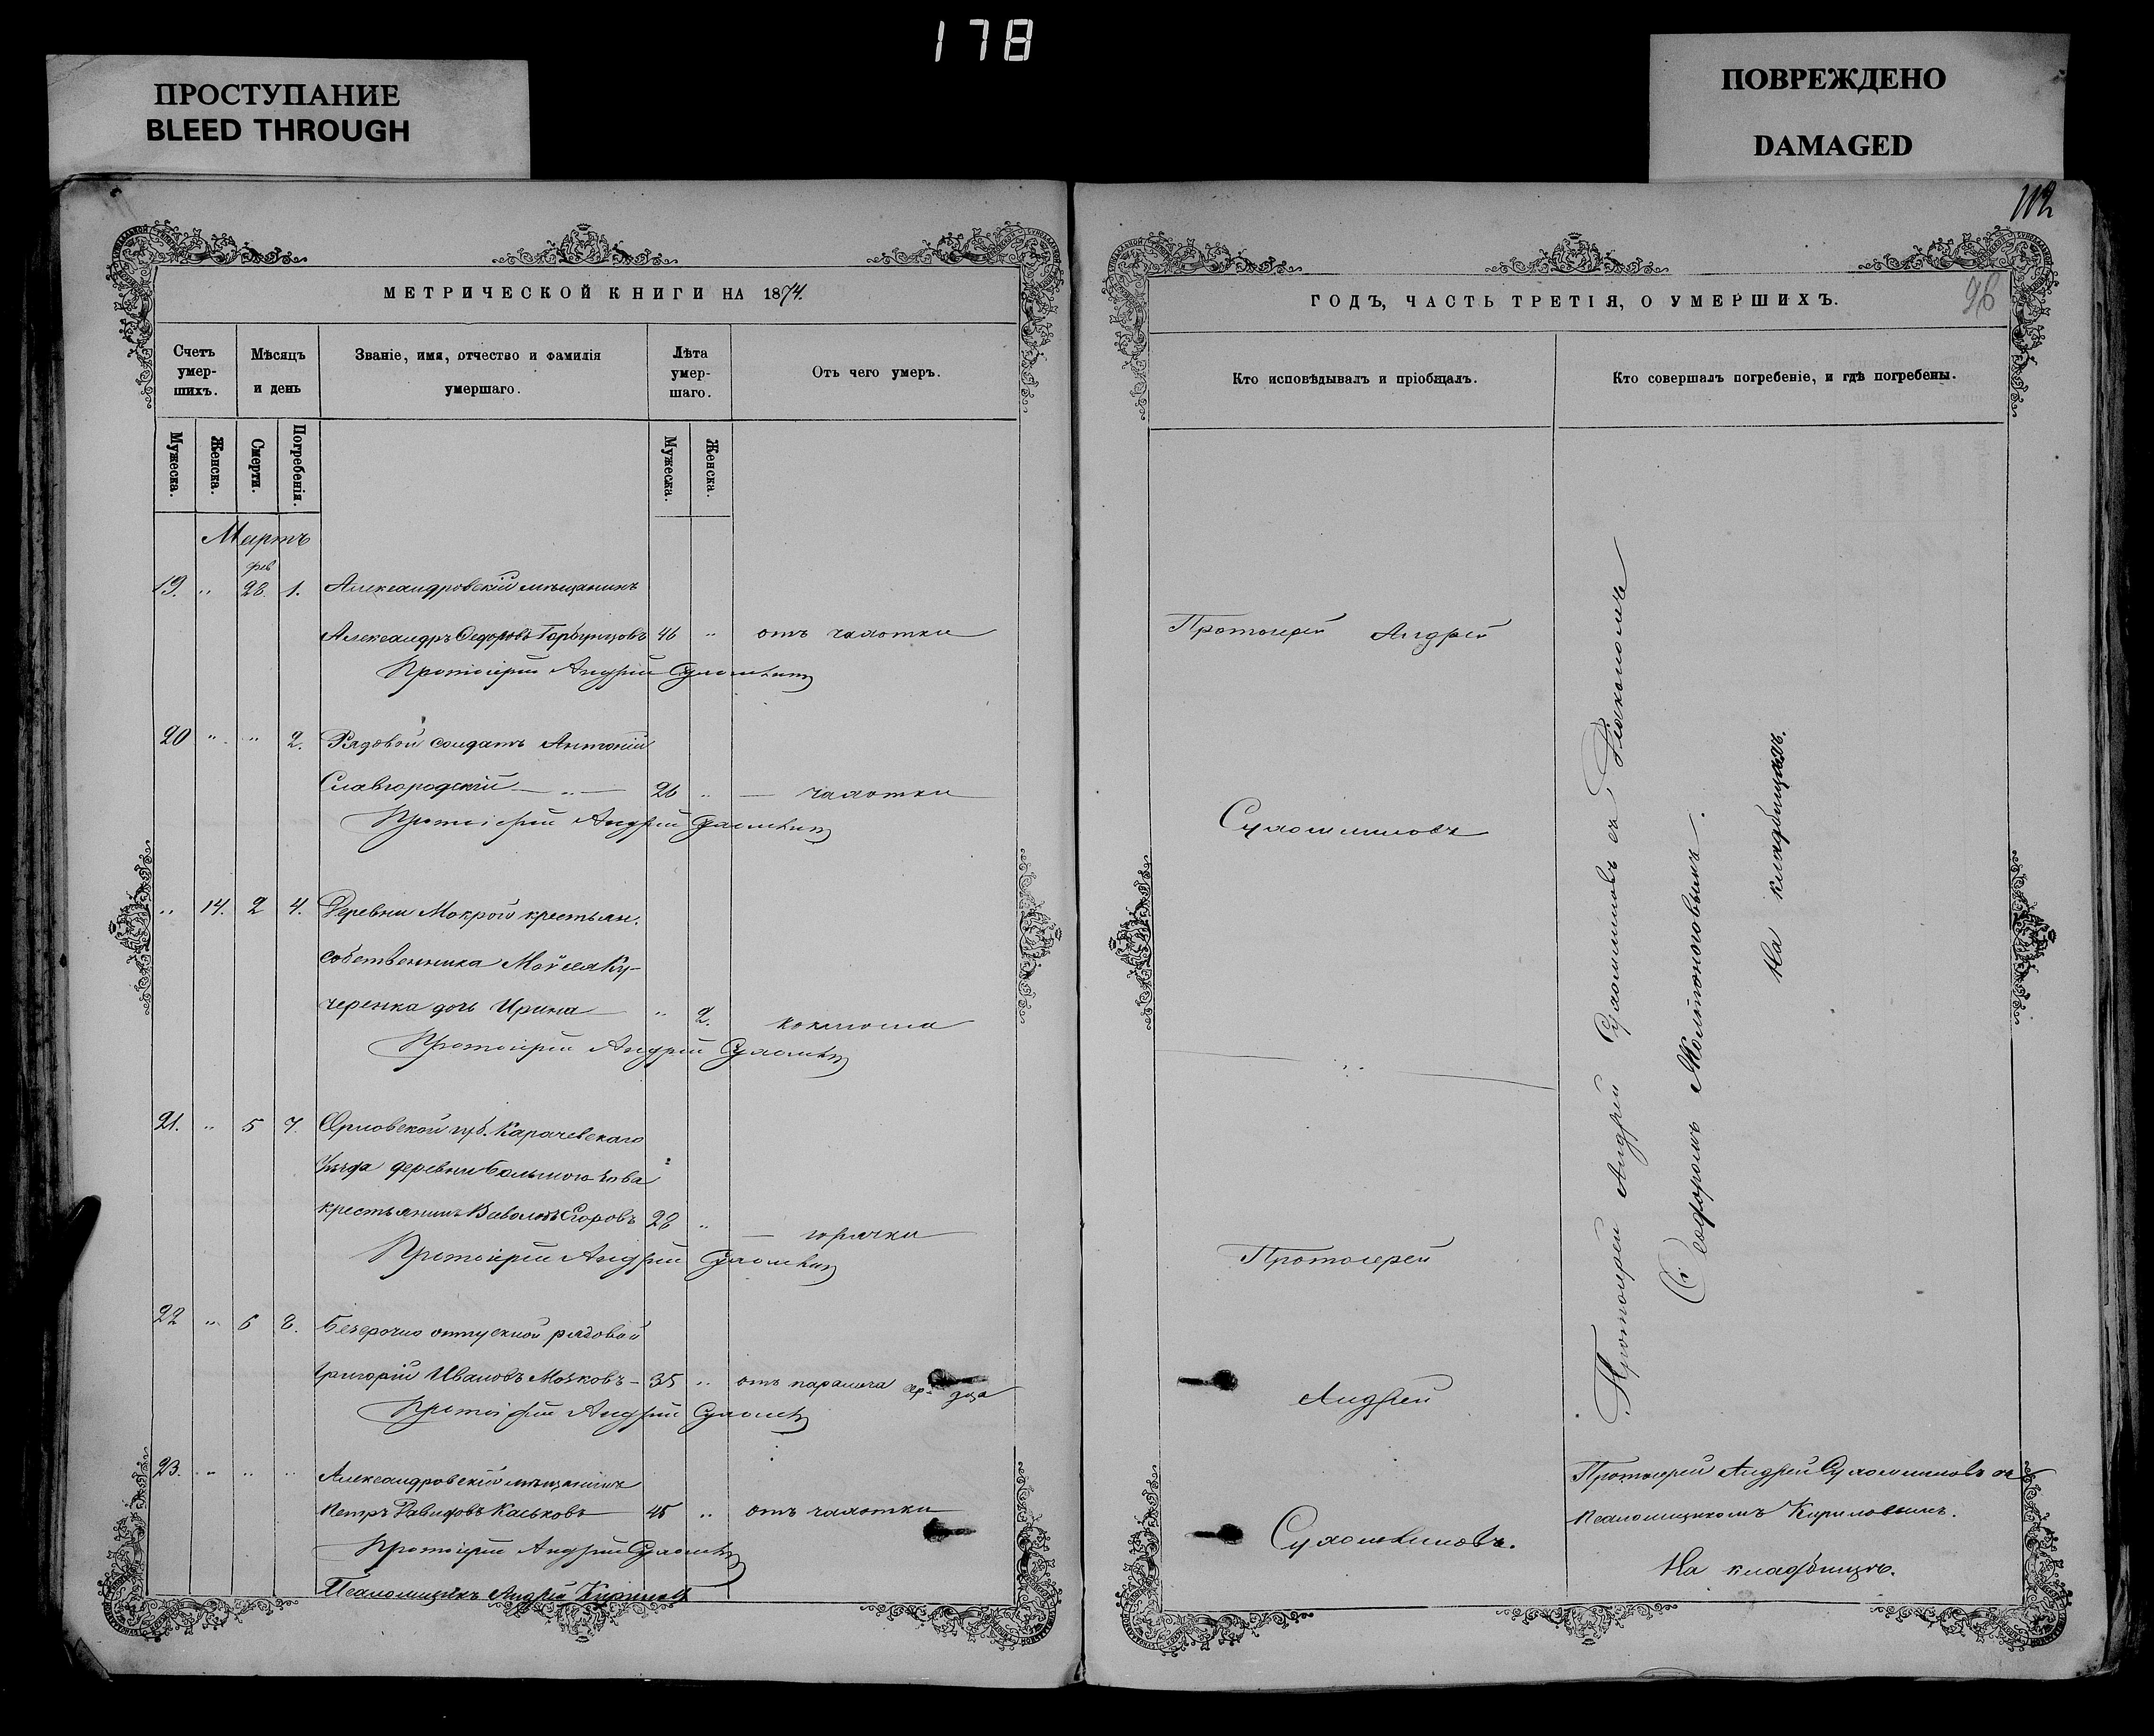 178
ПРОСТУПАНИЕ
BLEED THROUGH
ПОВРЕЖДЕНО
DAMAGED
МЕТРИЧЕСКОЙ КНИГИ НА 1874.
Счетъ умер-шихъ.
Мѣсяцъ и день
Званіе, имя, отчество и фамилія умершаго.
Лѣта умер-шаго.
Отъ чего умеръ.
Мужеска.
Женска.
Смерти.
Погребенія.
Мужеска.
Женска.
Мартъ
фев
19. " 28. 1. Александровскій мѣщанинъ
Александръ Ѳедоровъ Горбунцовъ 46 " отъ чахотки
Протоіерей Андрей
20 " " 2. Рядовой солдатъ Антоній
Славгородскій — " — 26 " — чахотки
Протоіерей Андрей
" 14. 2 4. Деревни Мокрой крестьян.
собственника Мойсея Ку-
черенка дочь Ирина " 2. коклюша
Протоіерей Андрей
21. " 5 7. Орловской губ. Карачевскаго
Уѣзда деревни
крестьянинъ Егоровъ 28 " — горячки
Протоіерей Андрей
22 " 6 8. Безсрочно отпускной рядовой
Григорій Ивановъ — 35 " отъ паралича сердца
Протоіерей Андрей
23. " " " Александровскій мѣщанинъ
Петръ Давидовъ Каськовъ 45 " отъ чахотки
Протоіерей Андрей
Псаломщикъ Андрей Кириловъ
112
96
ГОДЪ, ЧАСТЬ ТРЕТІЯ, О УМЕРШИХЪ.
Кто исповѣдывалъ и пріобщалъ.
Кто совершалъ погребеніе, и гдѣ погребены.
Протоіерей Андрей
Сухомлиновъ
Протоіерей
Андрей
Сухомлиновъ.
Протоіерей Андрей Сухомлиновъ съ Діакономъ
На кладбищахъ.
Протоіерей Андрей Сухомлиновъ съ
псаломщикомъ Кириловымъ.
На кладбищѣ.